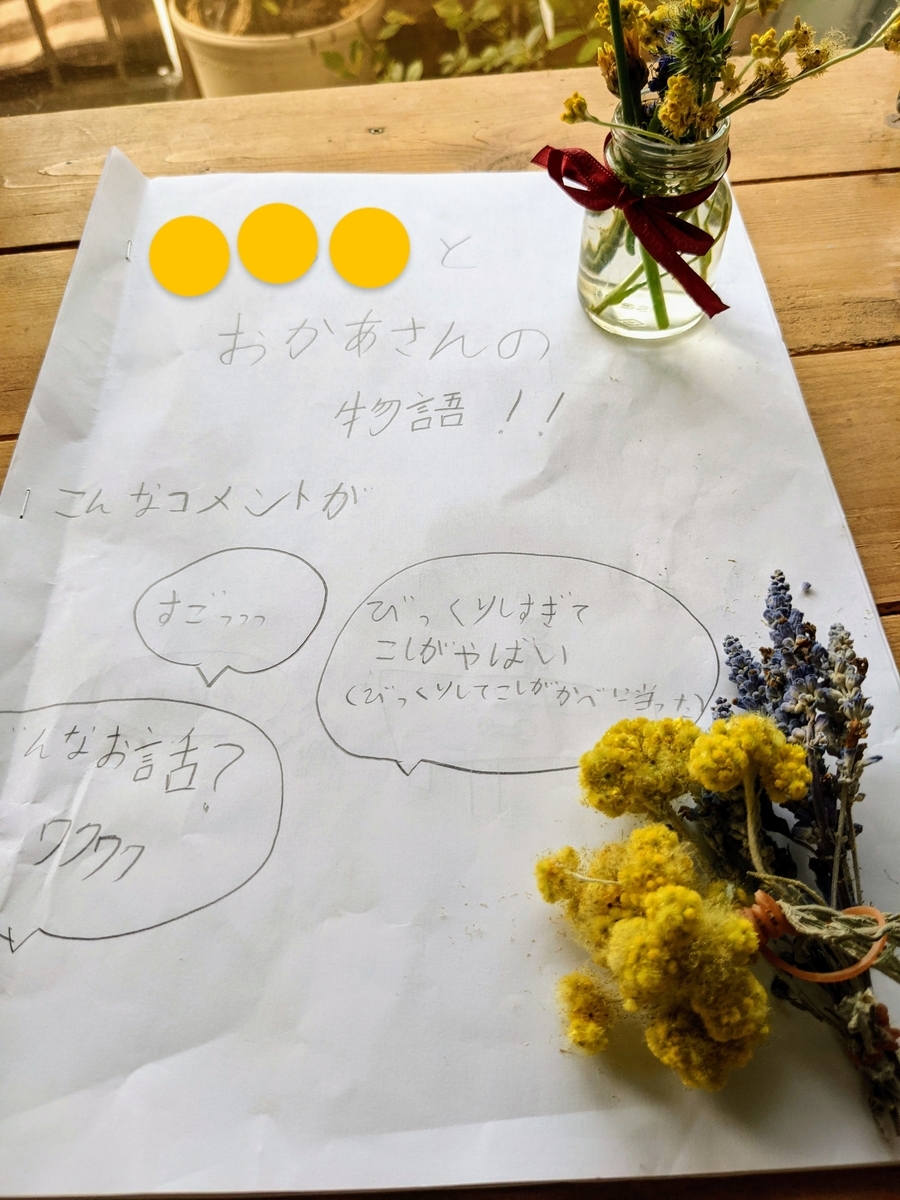 と
おかあさんの
物語!!
こんなコメントが
すごっっっ
びっくりしすぎて
こしがやばい
(びっくりしてこしがかべに当った)
んなお話?
ワクワク